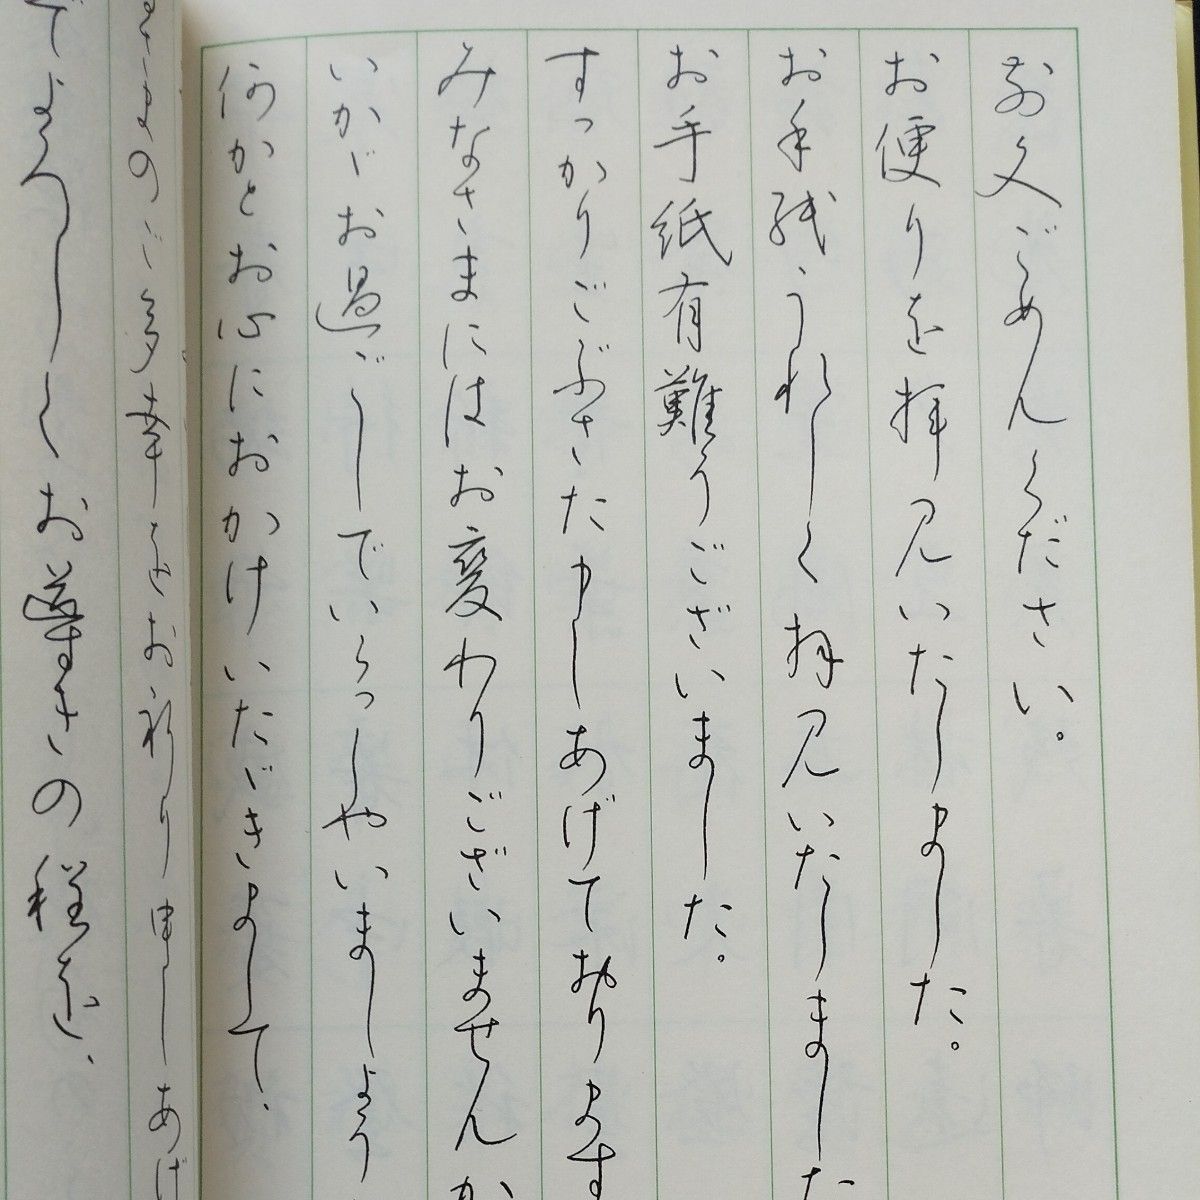 前文ごめんください。
お便りを拝見いたしました。
お手紙、うれしく拝見いたしました
お手紙有難うございました。
すっかりごぶさた申しあげております
みなさまにはお変わりございませんか
いかがお過ごしでいらっしゃいましょう
何かとお心におかけいただきまして、
のご多幸をお祈り申しあげ
てよろしくお導きの程を、